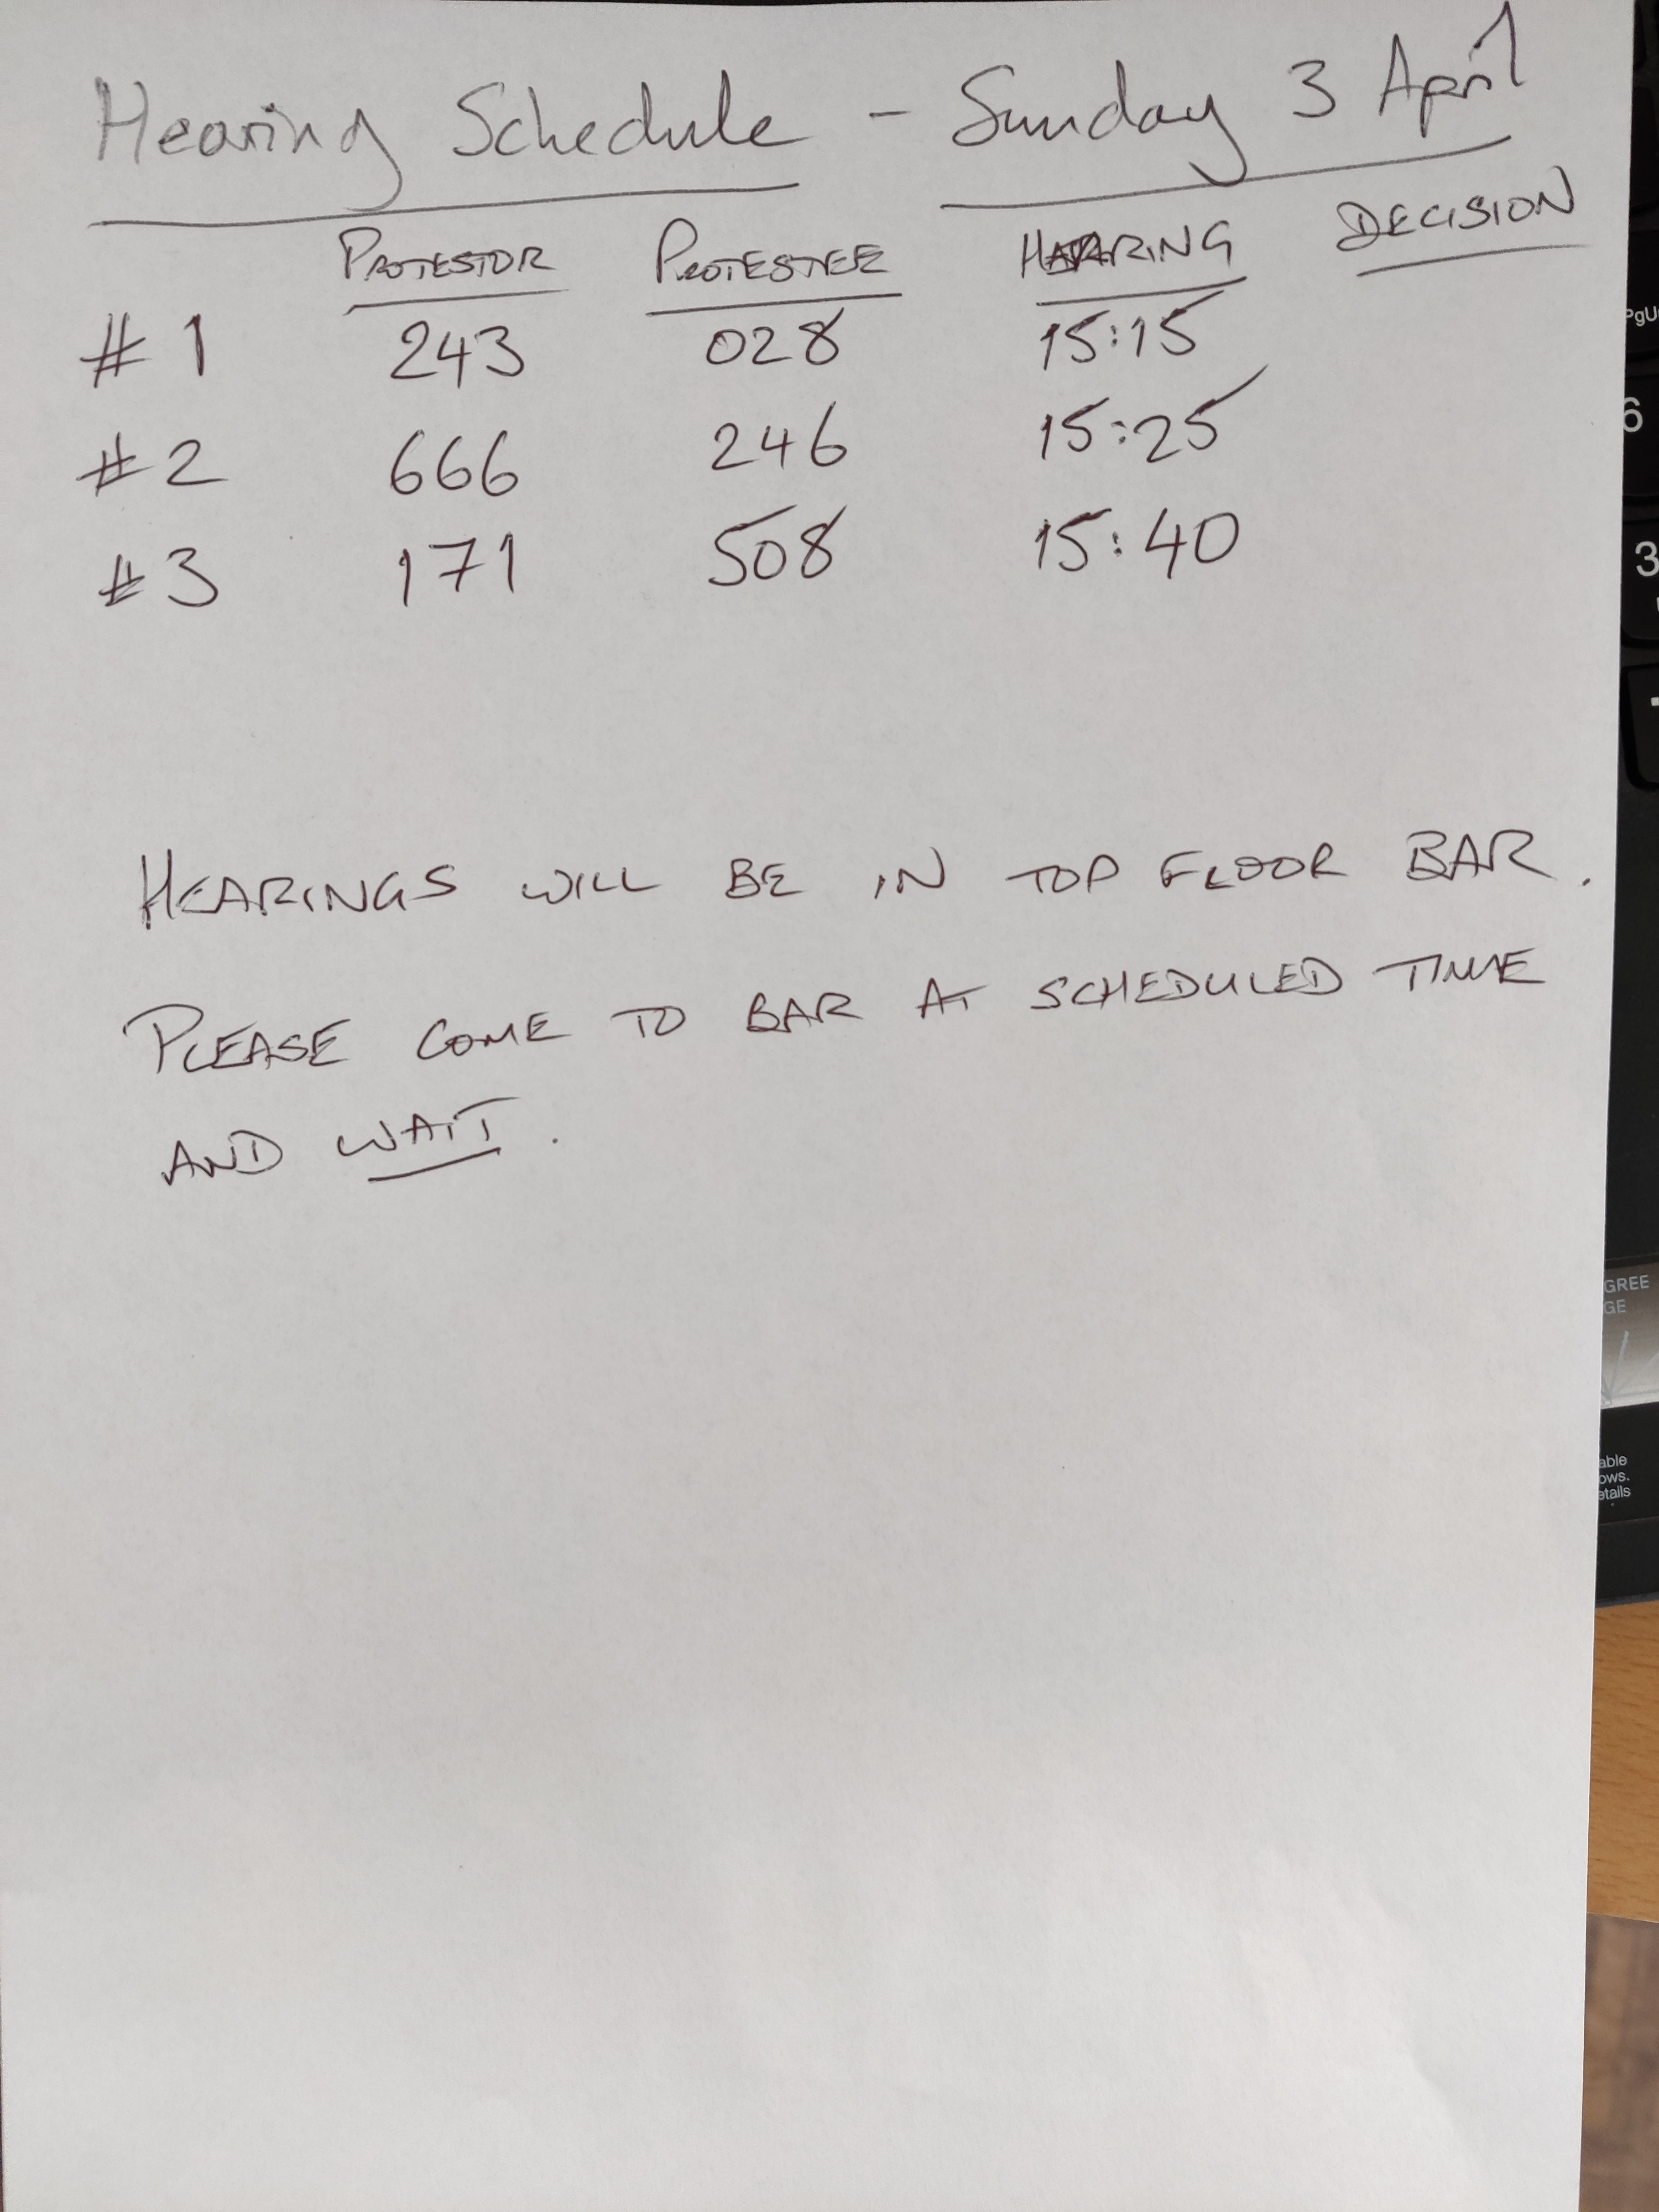 Hearing Schedule - Sunday 3 April
PROTESTOR PROTESTEE HEARING DECISION
#1 243 028 15:15
#2 666 246 15:25
#3 171 508 15:40
HEARINGS WILL BE IN TOP FLOOR BAR.
PLEASE COME TO BAR AT SCHEDULED TIME
AND WAIT.
PgU
6
3
GREE
GE
able
ows.
etails